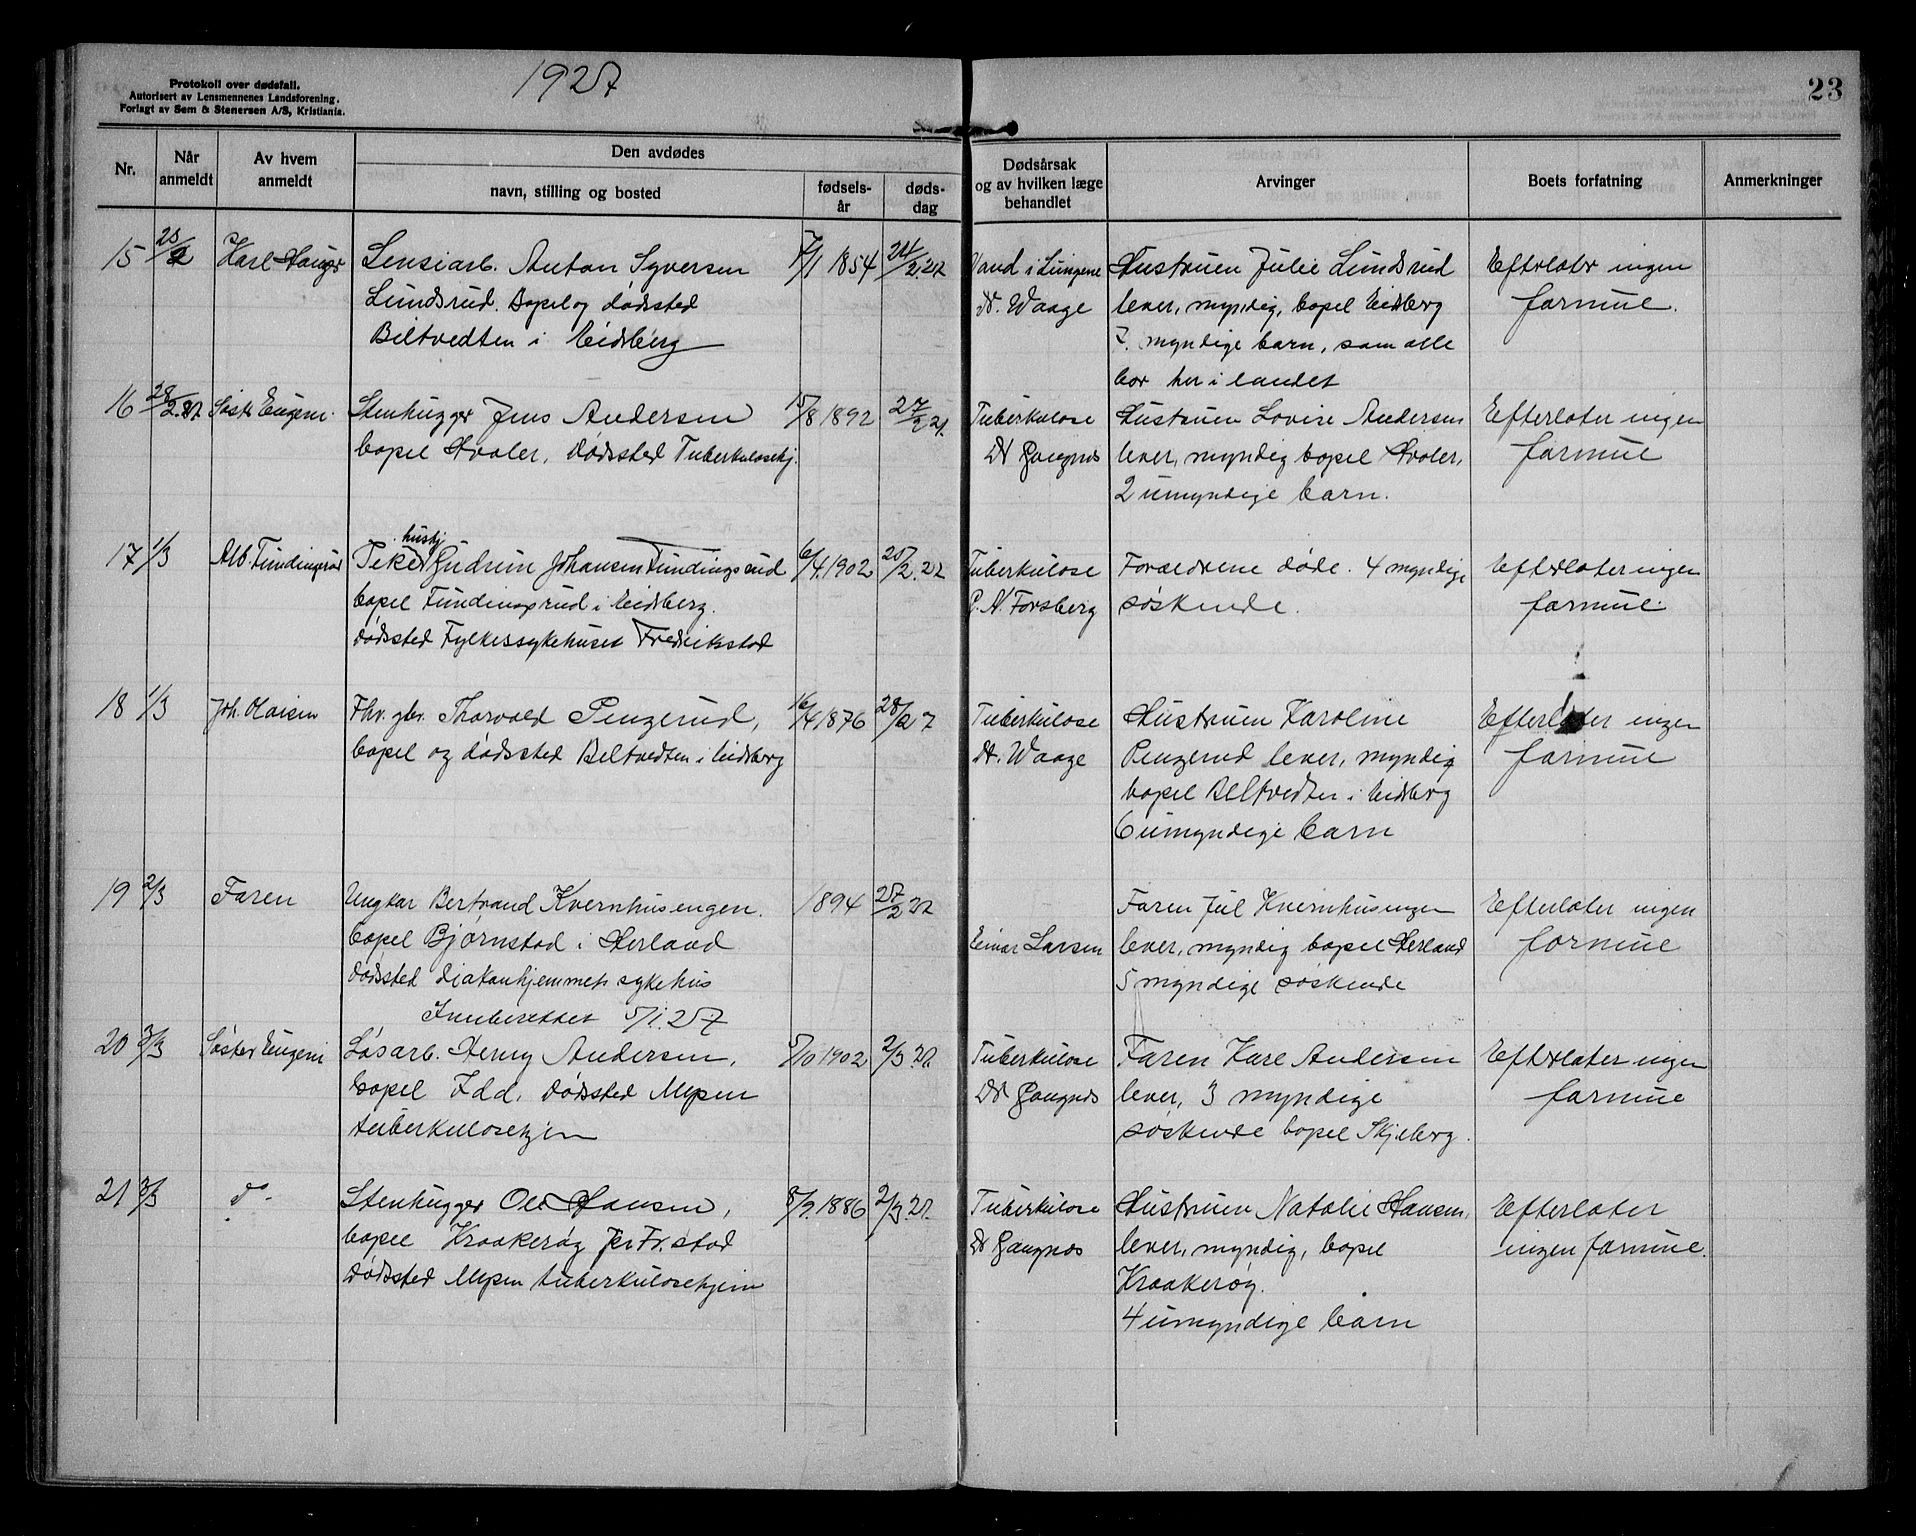 Protokoll over dødsfall.
Autorisert av Lensmennenes Landsforening.
Forlagt av Sem & Stenersen A/S, Kristiania.
1927
23
Nr.
Når anmeldt
Av hvem anmeldt
Den avdødes
navn, stilling og bosted
fødselsår
dødsdag
Dødsårsak og av hvilken læge behandlet
Arvinger
Boets forfatning
Anmerkninger
15 Karl Anton Syversen 7/1 1854 24/2.27 Vand i Lungene Hustruen Julie Lundsrud Efterlater ingen
Lundsrud. Bopel og dødsted Dr. Waage lever, myndig, bopel Eidsberg formue.
Biltvedten i Eidsberg 7. myndige barn, som alle
bor her i landet
16 28/2.27 Søster Eugeni. Stenhugger Jens Andersen 5/8 1892 27/2 27. Tuberkulose Hustruen Lovise Andersen Efterlater ingen
bopel Hvaler, dødsted Tuberkulosehj. Dr lever, myndig bopel Hvaler, formue
2 umyndige barn.
17 1/3 Alb. Fundingsrud hushj.
Gudrun Johansen Fundingsrud 6/4.1902 25/2.27 Tuberkulose Forældrene døde. 4 myndige Efterlater ingen
bopel Fundingsrud i Eidsberg. Forsberg søskende. formue.
dødsted Fylkessykehuset Fredrikstad
18 1/3 Joh. Olaisen Fhv. gbr. Thorvald Pengerud, 16/4 1876 28/2 7 Tuberkulose Hustruen Karoline Efterlater ingen
bopel og dødsted Biltvedten i Eidsberg Dr. Waage Pengerud lever, myndig formue
bopel Biltvedten i Eidsberg
6 umyndige barn
19 2/3 Faren Ungkar Bertrand Kvernhusengen. 1894 27/2 27 Faren Jul Kvernhusengen Efterlater ingen
bopel Bjørnstad i Herland Einar Larsen lever, myndig bopel Herland formue
dødsted Diakonhjemmets sykehus 5 myndige søskende
Innberettet 5/1.27
20 3/3 Søster Eugeni Løsarb. Henry Andersen, 5/10 1902 2/3.27. Tuberkulose Faren Karl Andersen Efterlater ingen
bopel Idd, dødsted Mysen Dr lever, 3 myndige formue
tuberkulosehjem søskende bopel Skjeberg.
21 3/3 do - Stenhugger Ole Hansen, 8/9.1886 2/3.27. Tuberkulose Hustruen Natalie Hansen, Efterlater
bopel Kraakerøy pr Fr.stad Dr lever, myndig, bopel ingen formue.
dødsted Mysen tuberkulosehjem Kraakerøy.
4 umyndige barn